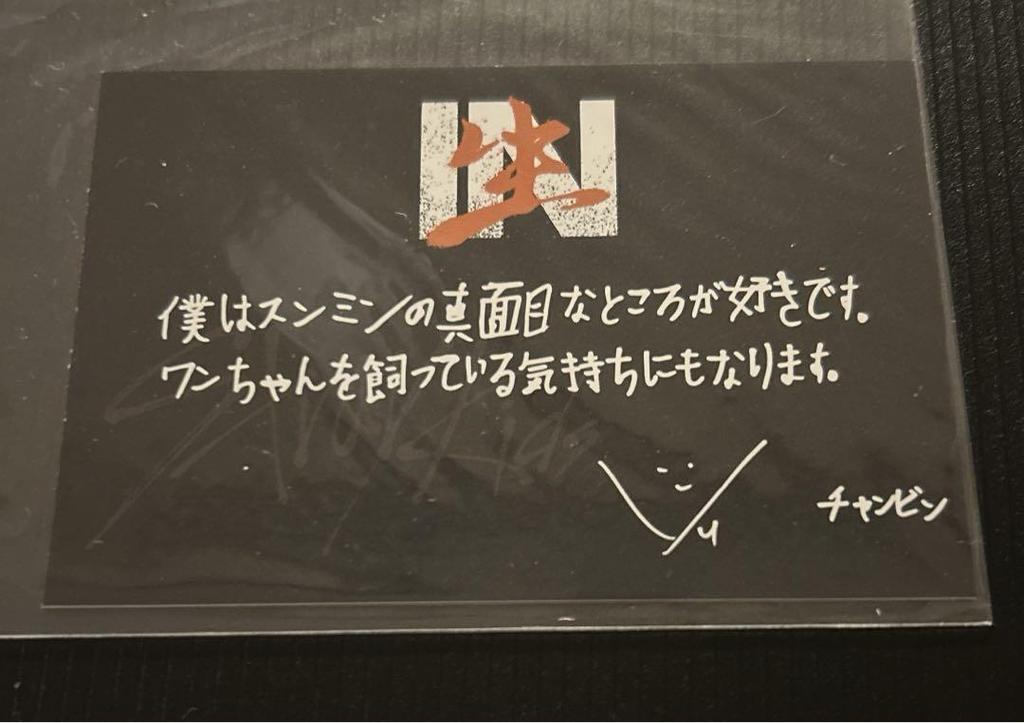 IN
生
僕はスンミンの真面目なところが好きです。
ワンちゃんを飼っている気持ちにもなります。
チャンビン
Stray Kids